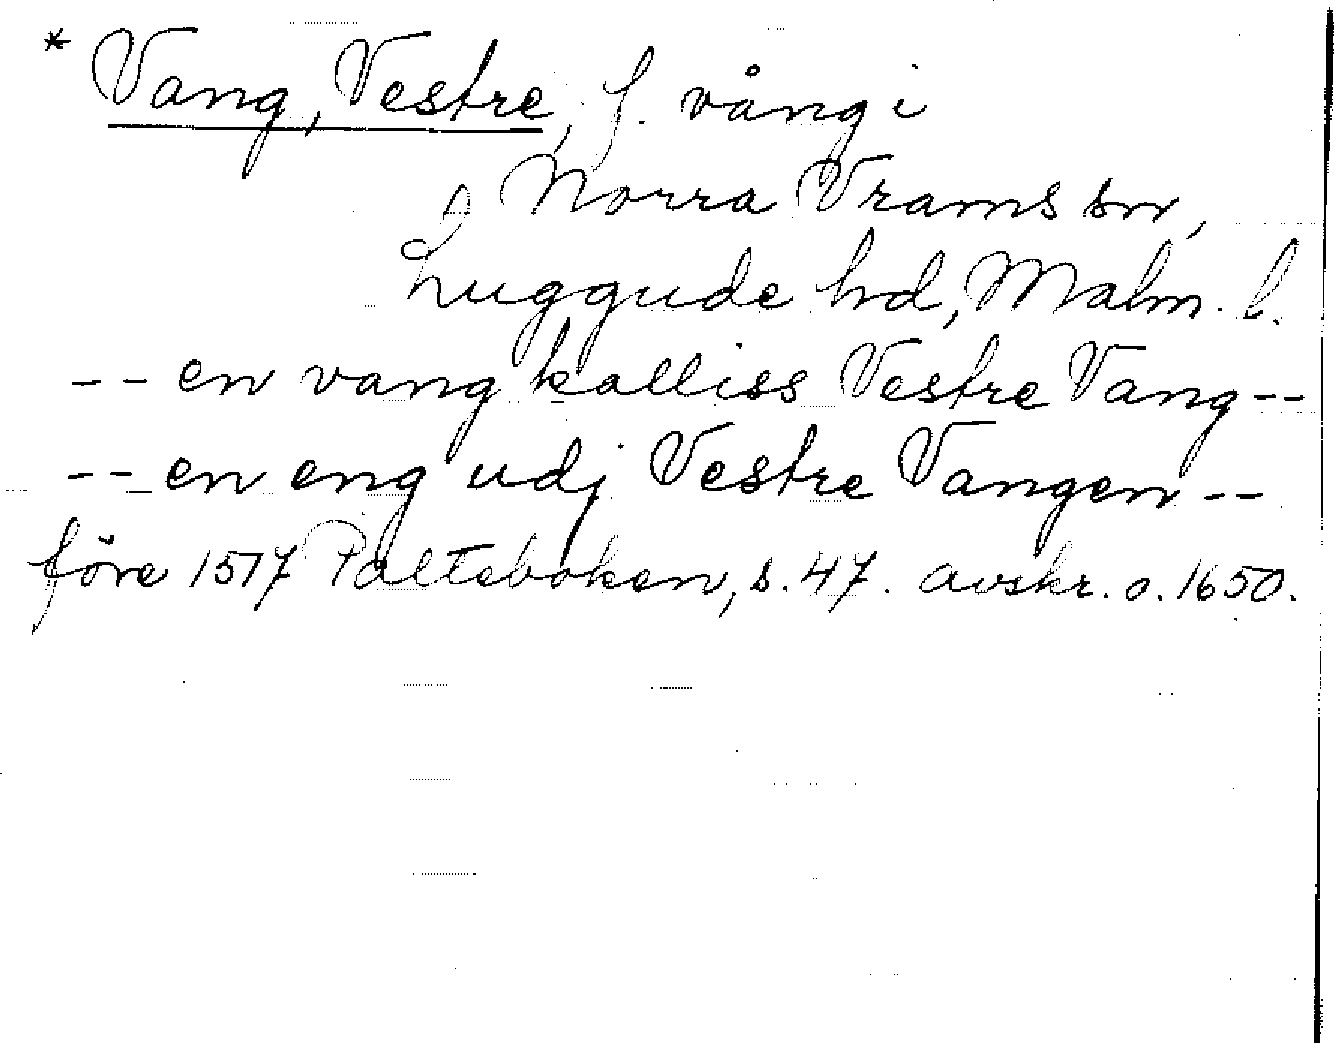 * Vang, Vestre, f. vång i
Norra Vrams sn,
Luggude hd, Malm. l.
-- en vang kalliss Vestre Vang --
-- en eng udj Vestre Vangen --
före 1517 Palteboken, s. 47. avskr. o. 1650.